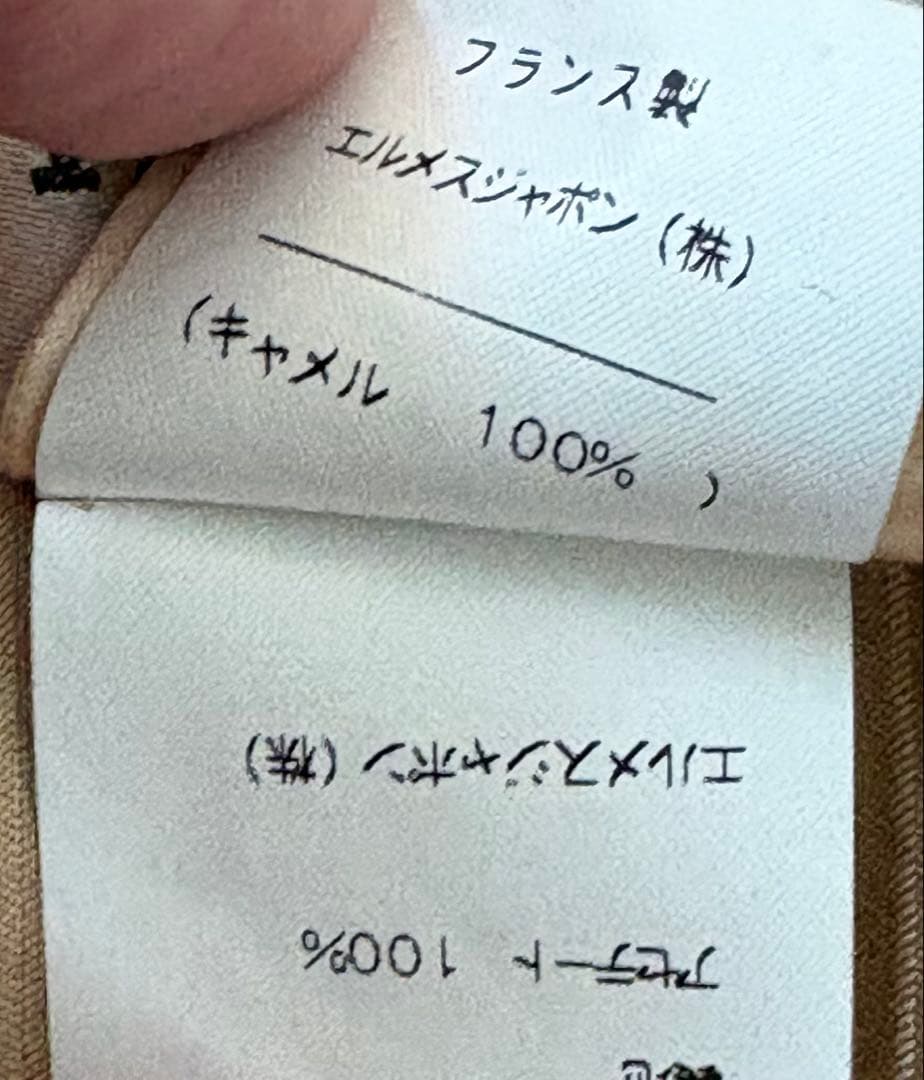 フランス製
エルメスジャポン (株)
(キャメル 100% )
エルメスジャポン (株)
アセテート 100%